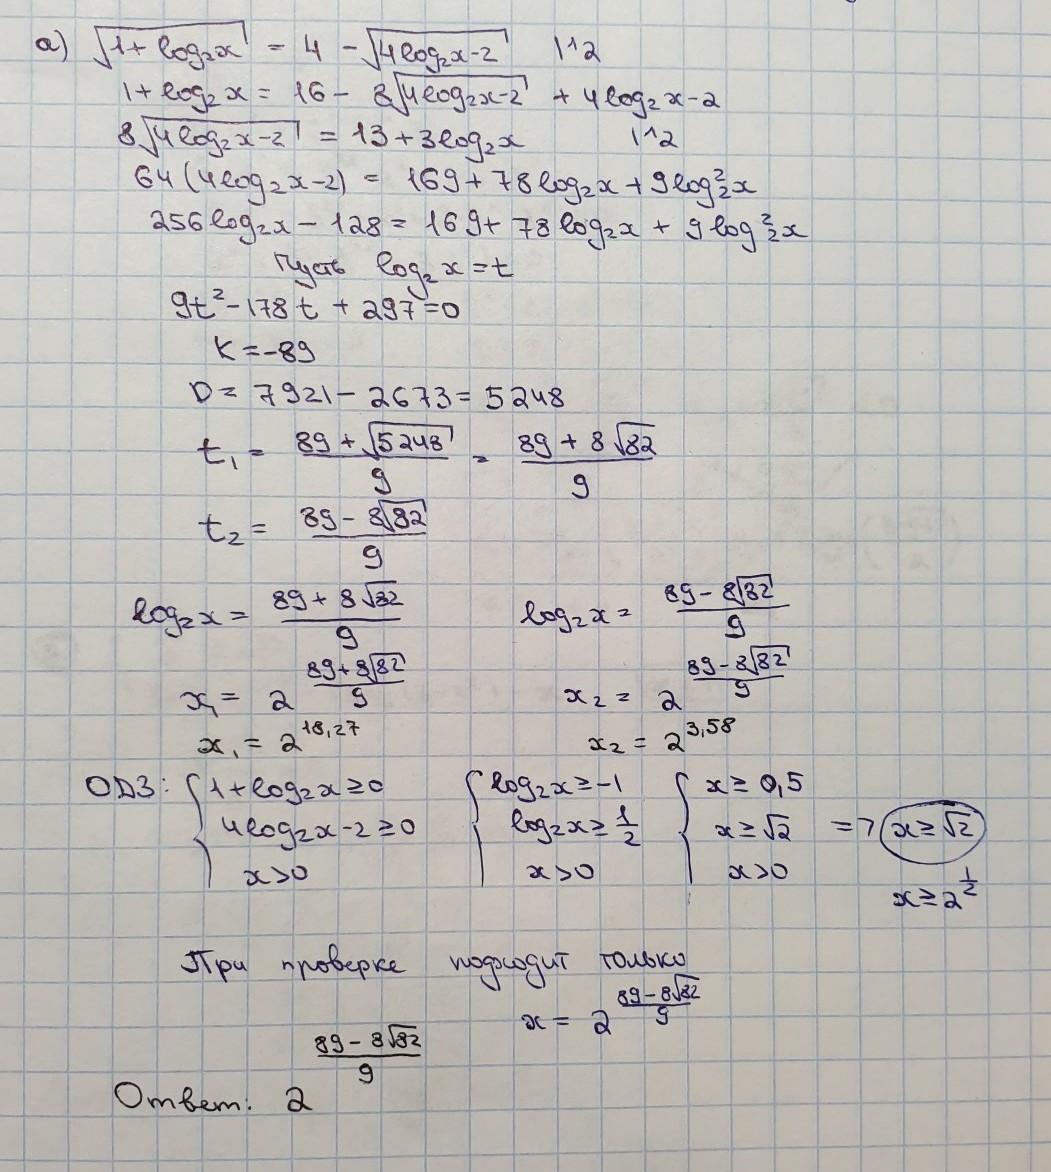 а) √(1+log₂x) = 4 - √(4log₂x-2) |^2
1+log₂x = 16 - 8√(4log₂x-2) + 4log₂x-2
8√(4log₂x-2) = 13+3log₂x |^2
64(4log₂x-2) = 169+78log₂x+9log₂²x
256log₂x - 128 = 169+78log₂x + 9log₂²x
Пусть log₂x=t
9t²-178t+297=0
K=-89
D= 7921-2673=5248
t₁= (89+√5248)/9 = (89+8√82)/9
t₂= (89-8√82)/9
log₂x= (89+8√82)/9 log₂x= (89-8√82)/9
x₁= 2^((89+8√82)/9) x₂= 2^((89-8√82)/9)
x₁=2^18,27 x₂=2^3,58
ОДЗ: { 1+log₂x≥0 { log₂x≥-1 { x≥0,5
4log₂x-2≥0 log₂x≥1/2 x≥√2 => x≥√2
x>0 x>0 x>0 x≥2^(1/2)
При проверке подходит только
x= 2^((89-8√82)/9)
Ответ: 2^((89-8√82)/9)